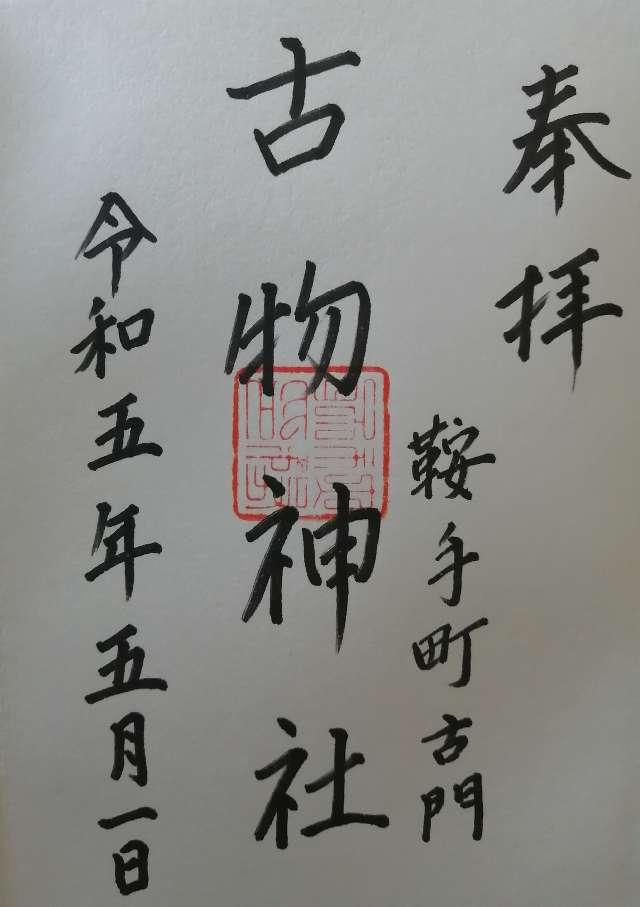 奉拝
鞍手町古門
古物神社
令和五年五月一日